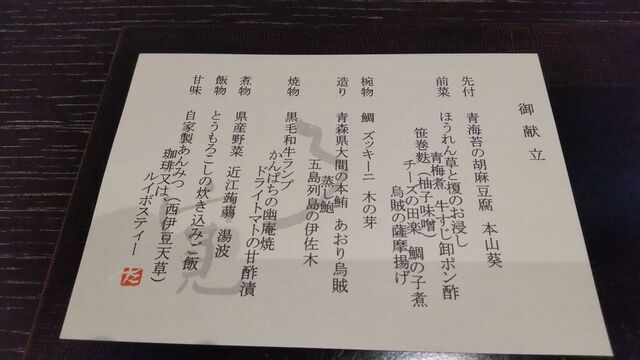 御献立
先付 青海苔の胡麻豆腐 本山葵
前菜 ほうれん草と榎のお浸し
青梅煮 牛すじ卸ポン酢
笹巻麩（柚子味噌）
チーズの田楽 鯛の子煮
烏賊の薩摩揚げ
椀物 鯛 ズッキーニ 木の芽
造り 青森県大間の本鮪 あおり烏賊
蒸し鮑
五島列島の伊佐木
焼物 黒毛和牛ランプ
かんぱちの幽庵焼
ドライトマトの甘酢漬
煮物 県産野菜 近江蒟蒻 湯波
飯物 とうもろこしの炊き込みご飯
甘味 自家製あんみつ（西伊豆天草）
珈琲又は、ルイボスティー